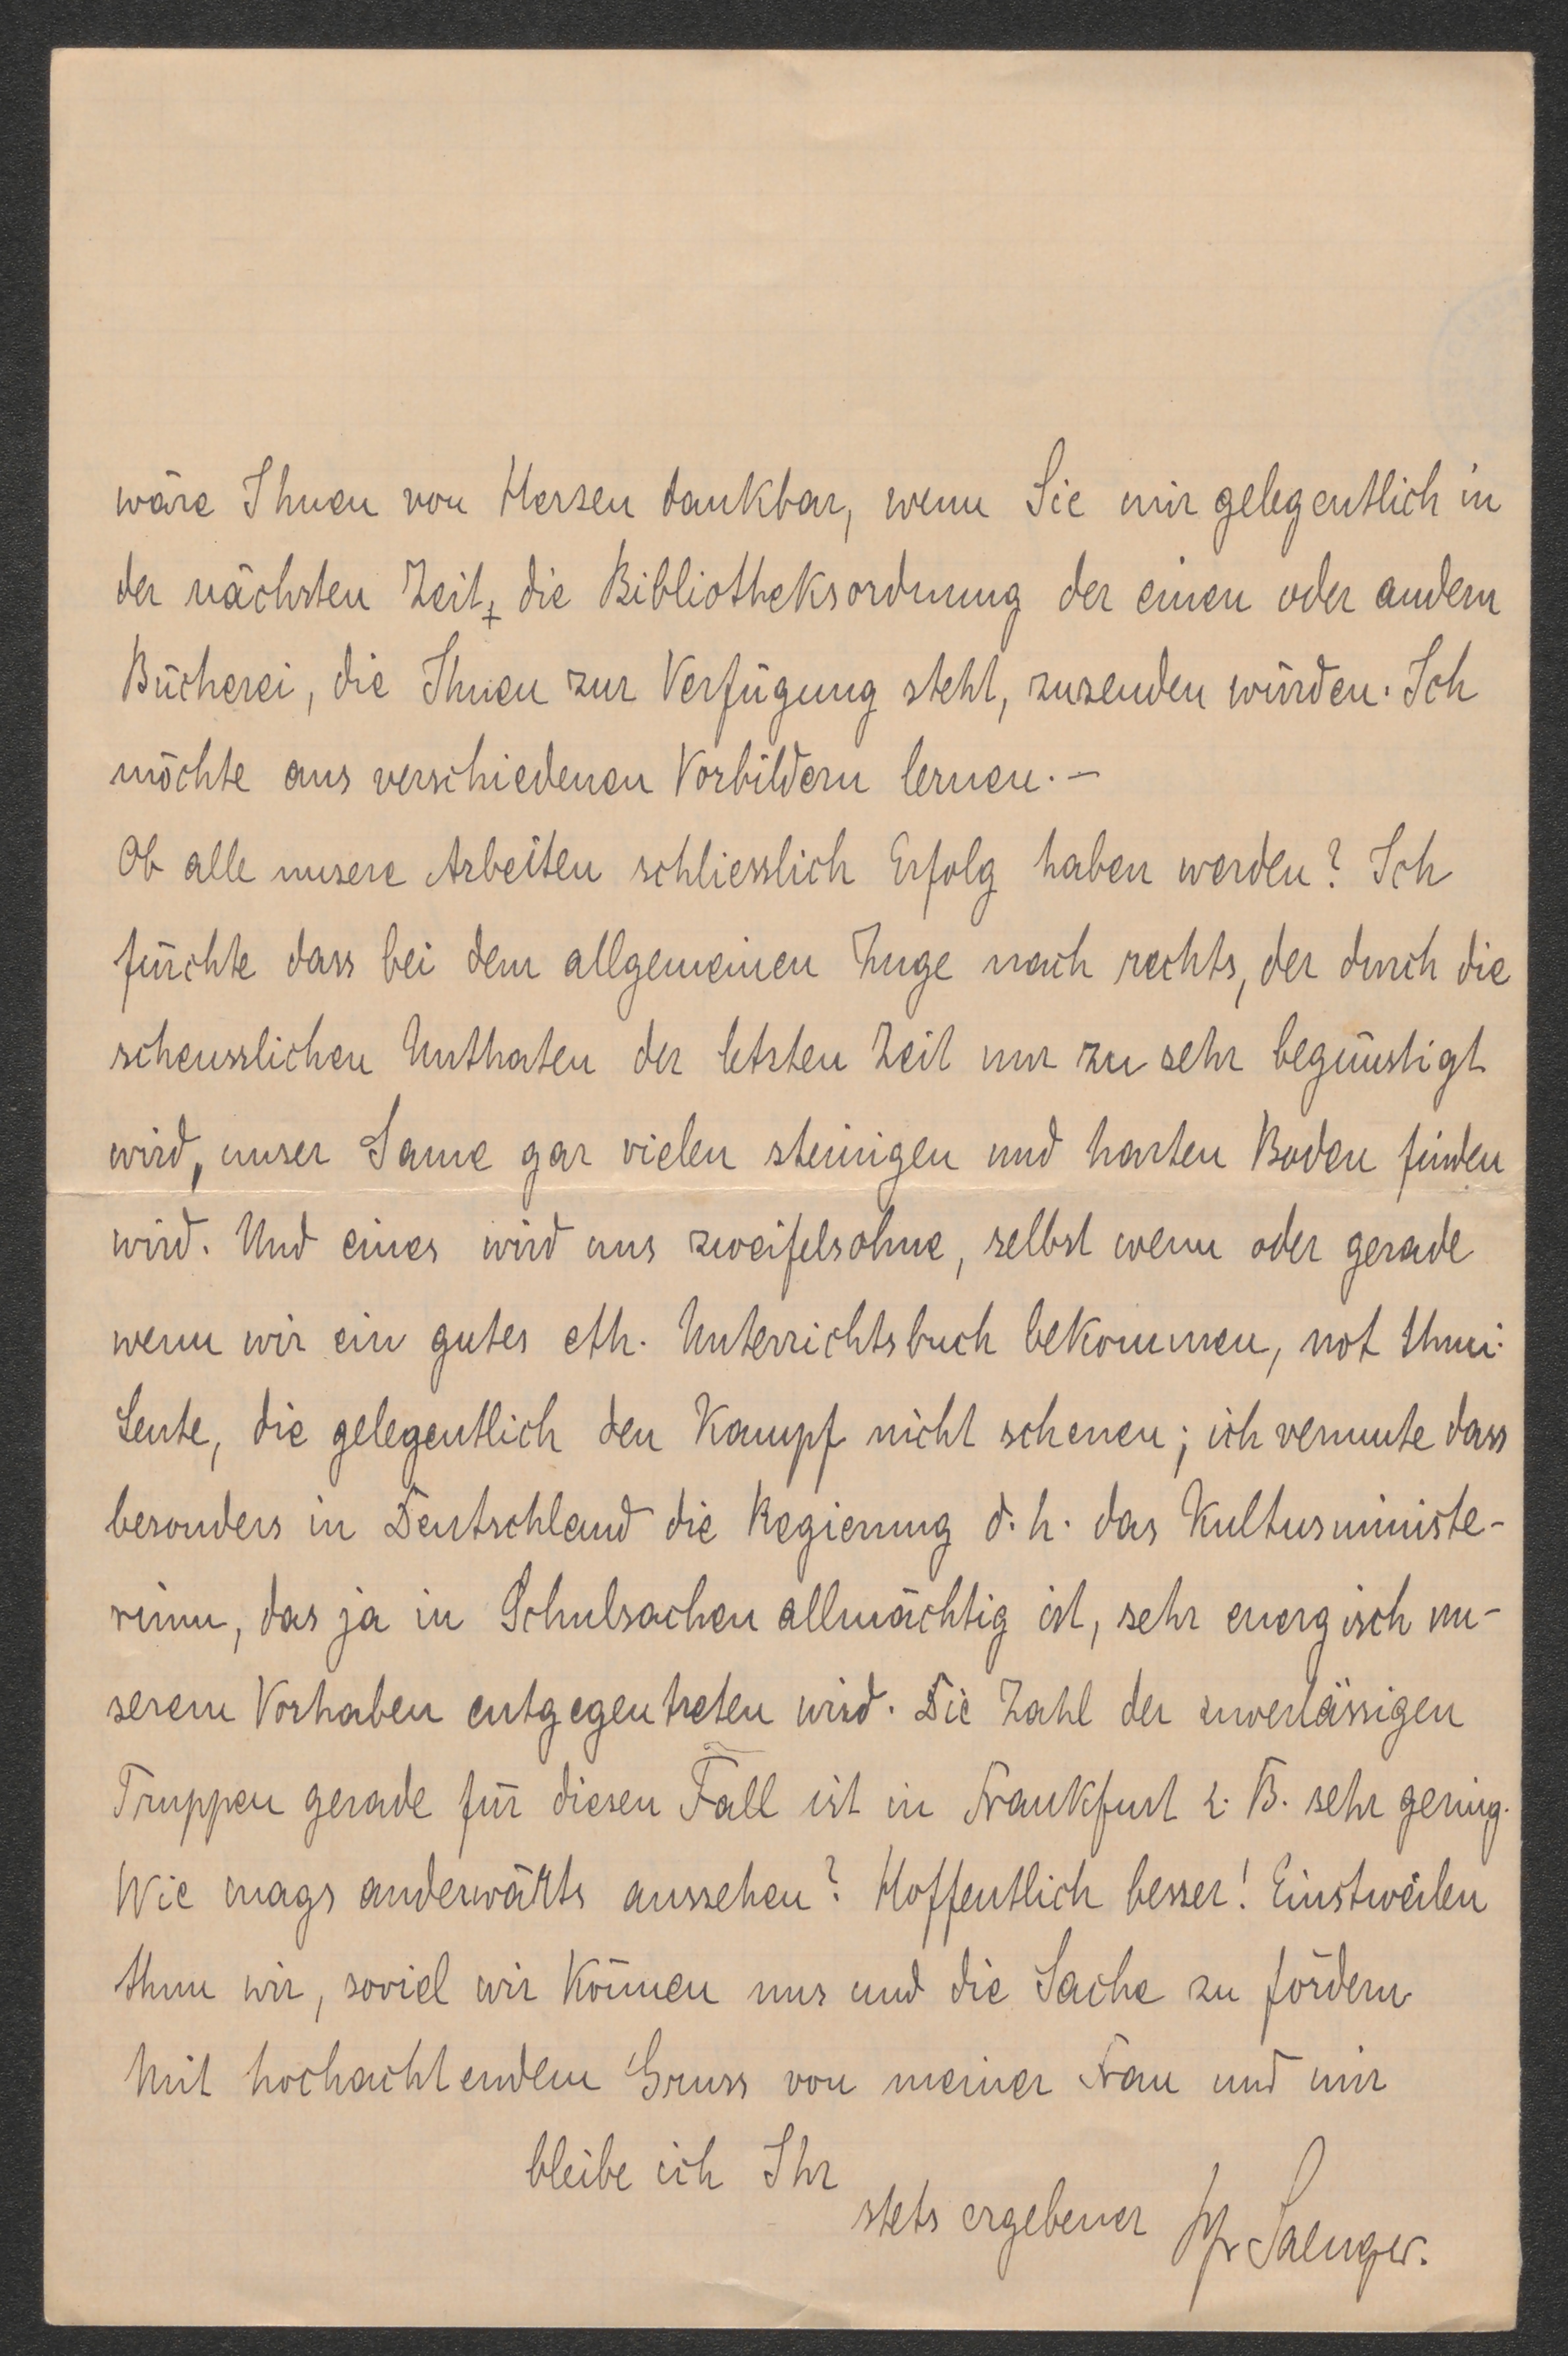 wäre Ihnen von Herzen dankbar, wenn Sie mir gelegentlich in
der nächsten Zeit, die Bibliotheksordnung der einen oder andern
Bücherei, die Ihnen zur Verfügung steht, zusenden würden. Ich
möchte aus verschiedenen Vorbildern lernen. –
Ob alle unsere Arbeiten schliesslich Erfolg haben werden? Ich
fürchte dass bei dem allgemeinen Zuge nach rechts, der durch die
scheusslichen Unthaten der letzten Zeit nur zu sehr begünstigt
wird, unser Same gar vielen steinigen und harten Boden finden
wird. Und eines wird uns zweifelsohne, selbst wenn oder gerade
wenn wir ein gutes eth. Unterrichtsbuch bekommen, not thun:
Leute, die gelegentlich den Kampf nicht scheuen; ich vermute dass
besonders in Deutschland die Regierung d. h. das Kultusministe-
rium, das ja in Schulsachen allmächtig ist, sehr energisch un-
serem Vorhaben entgegentreten wird. Die Zahl der zuverlässigen
Truppen gerade für diesen Fall ist in Frankfurt z. B. sehr gering.
Wie mags anderwärts aussehen? Hoffentlich besser! Einstweilen
thun wir, soviel wir können uns und die Sache zu fördern
Mit hochachtendem Gruss von meiner Frau und mir
bleibe ich Ihr
stets ergebener Saenger.